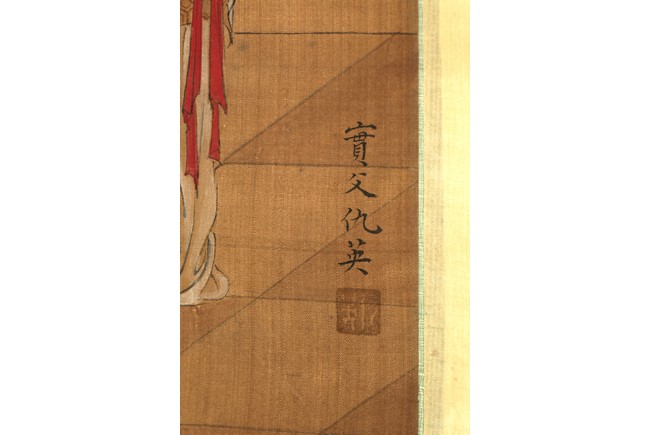 實父仇英